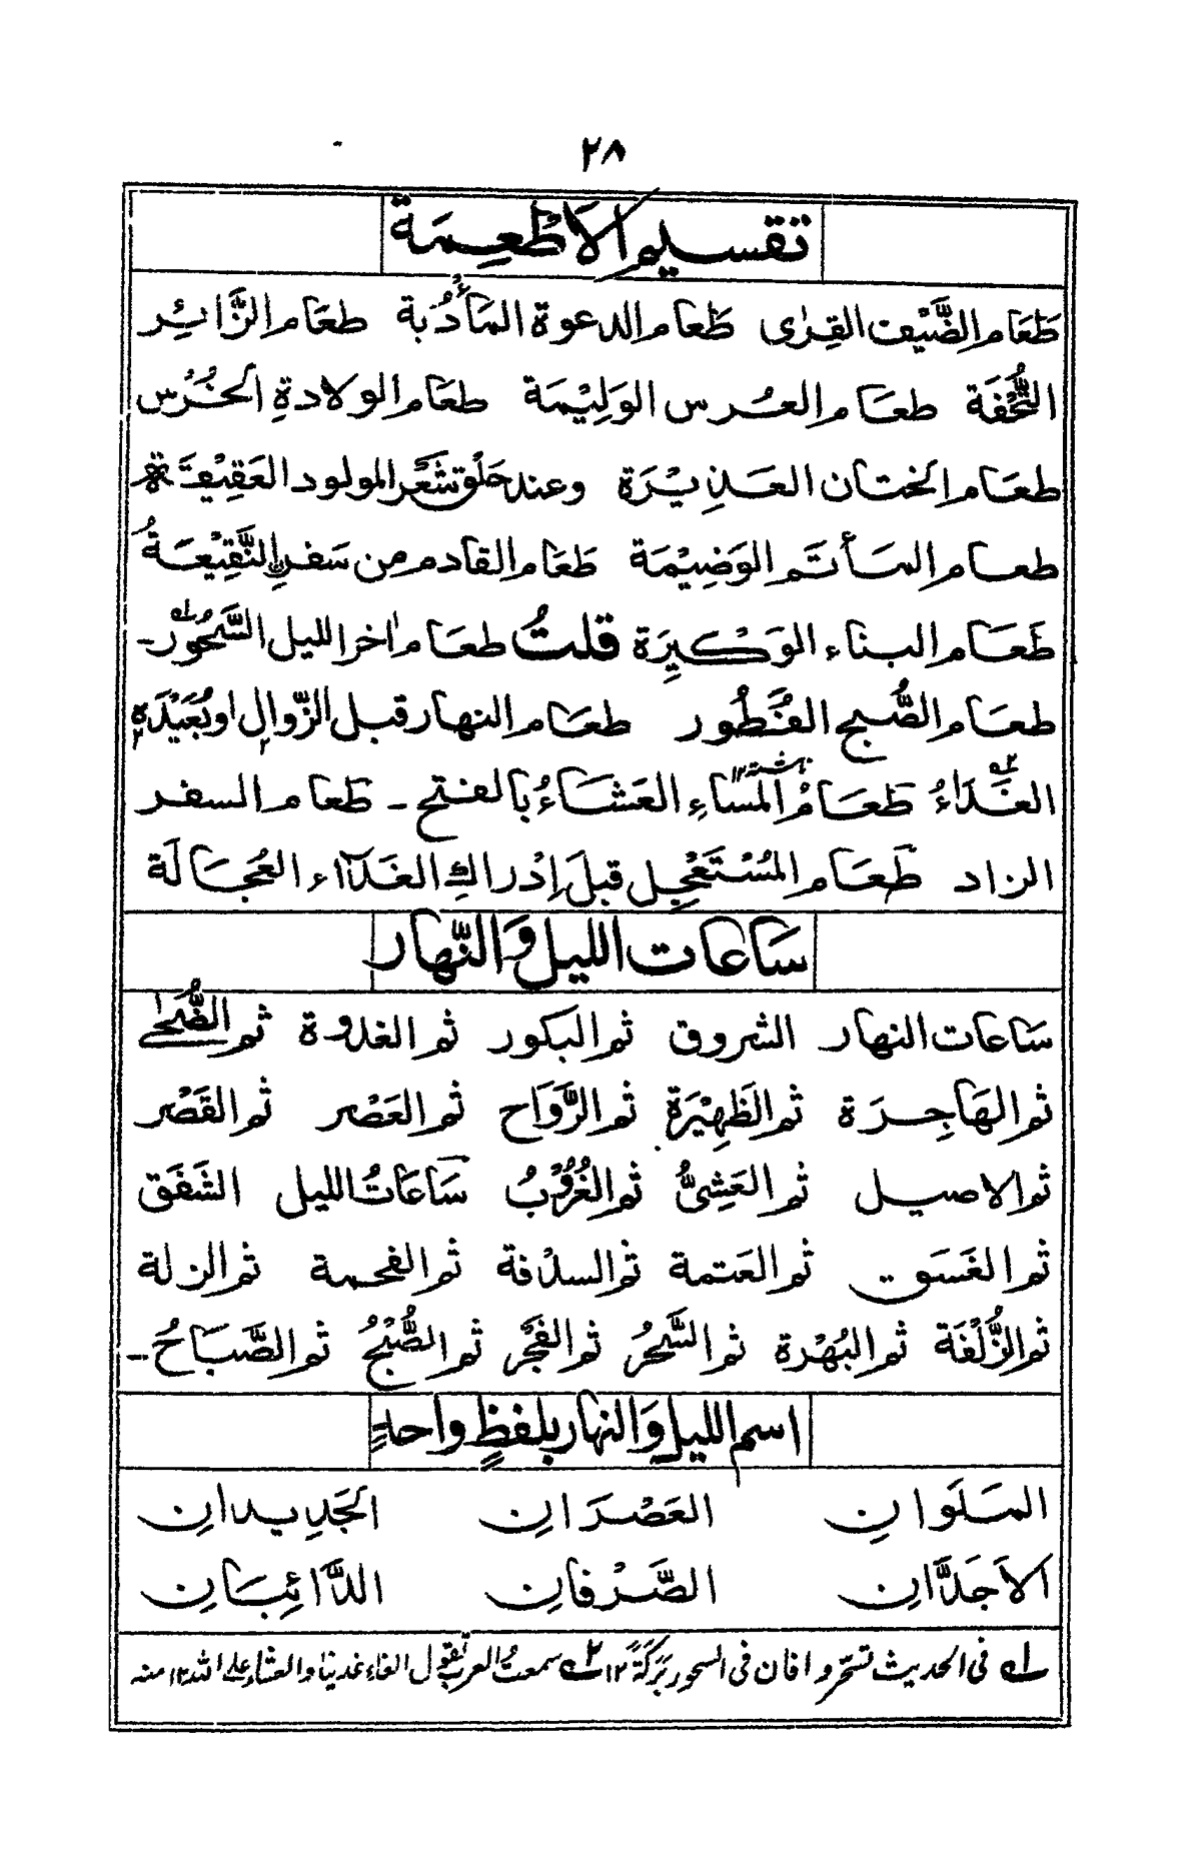 ٢٨
تقسيم الاَطْعِمَة
طَعَام الضَّيْف القِرٰى طَعام الدعوة المَأْدُبَة طعَام الزَّائِر
التُّحْفَة طعَام العُرس الوَلِيْمَة طعَام الولادةِ الخُرُس
طعَام الختان العَذِيْرَة وعند حَلْق شَعْر المولود العَقِيْقَة
طعام المأتَم الوَضِيْمَة طَعَام القادم من سَفرٍ النَّقِيْعَةُ
طَعَام البناء الوَكِيْرَة قلتُ طعَام اٰخر الليل السَّحُوْرُ ۱ـ
طعَام الصُّبح الفُطُور طعَام النهار قبل الزّوالِ او بُعَيْدَه
الغَدَاءُ ۲ طَعَامُ المَسَاءِ العَشَاءُ بالفتح ـ طَعام السفر
الزاد طَعَام المُسْتَعْجِل قبلَ اِدْراكِ الغَدَآء العُجَالَة
سَاعَات الليل وَالنَّهار
سَاعَات النهار الشروق ثم البكور ثم الغدوة ثم الضُّحٰى
ثم الهَاجِرَة ثم الظَهِيْرَة ثم الرَّوَاح ثم العَصْر ثم القَصْر
ثم الاصيل ثم العَشِىُّ ثم الغُرُوْبُ سَاعَاتُ الليل الشَفَق
ثم الغَسَق ثم العَتمة ثم السدْفة ثم الفحمة ثم الزلة
ثم الزُّلْفَة ثم البُهْرة ثم السَّحرُ ثم الفَجْر ثم الصُّبْحُ ثم الصَّبَاحُ ـ
اسم الليل وَالنهار بلفظٍ واحدٍ
المَلَوانِ العَصْرَانِ الجَدِيدانِ
الاَجَدَّانِ الصَّرْفانِ الدَّائِبَانِ
۱ فى الحديث تسحّروا فان فى السحور بَرَكَةً ۱۲ ۲ سمعتُ العرب تقول الغداء غدينا والعشاء على الله ۱۲ منه